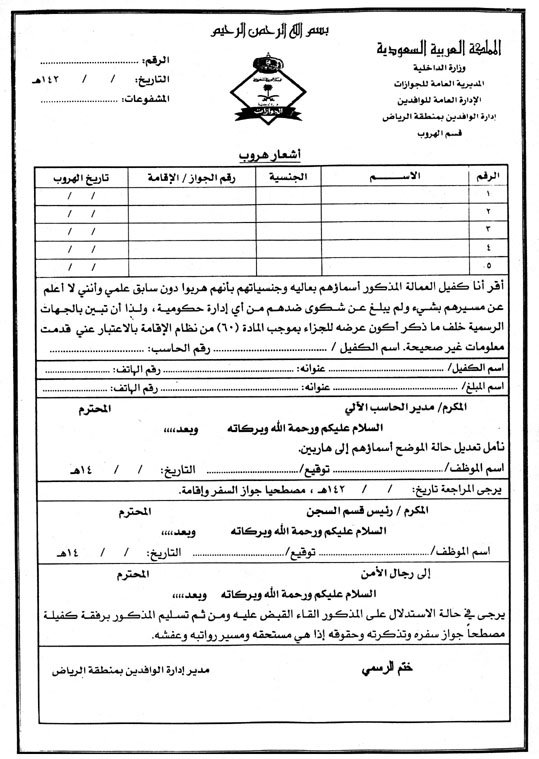 بسم الله الرحمن الرحيم
المملكة العربية السعودية
وزارة الداخلية
المديرية العامة للجوازات
الإدارة العامة للوافدين
إدارة الوافدين بمنطقة الرياض
قسم الهروب
الجوازات
الرقم: ........................
التاريخ: / / ١٤٢هـ
المشفوعات: ........................
أشعار هروب
الرقم الاســـم الجنسية رقم الجواز / الإقامة تاريخ الهروب
١ / /
٢ / /
٣ / /
٤ / /
٥ / /
أقر أنا كفيل العمالة المذكور أسماؤهم بعاليه وجنسياتهم بأنهم هربوا دون سابق علمي وأنني لا أعلم
عن مسيرهم بشيء ولم يبلغ عن شكوى ضدهم من أي إدارة حكومية، ولذا أن تبين بالجهات
الرسمية خلف ما ذكر أكون عرضه للجزاء بموجب المادة (٦٠) من نظام الإقامة بالأعتبار عني قدمت
معلومات غير صحيحة. اسم الكفيل / ........................ رقم الحاسب: ........................
اسم الكفيل/ ........................ عنوانه: ........................ رقم الهاتف: ........................
اسم المبلغ/ ........................ عنوانه: ........................ رقم الهاتف: ........................
المكرم/ مدير الحاسب الآلي المحترم
السلام عليكم ورحمة الله وبركاته وبعد،،،،
نأمل تعديل حالة الموضح أسماؤهم إلى هاربين.
اسم الموظف/ ........................ توقيع/ ........................ التاريخ: / / ١٤هـ
يرجى المراجعة تاريخ: / / ١٤٢هـ ، مصطحبا جواز السفر وإقامة.
المكرم / رئيس قسم السجن المحترم
السلام عليكم ورحمة الله وبركاته وبعد،،،،
اسم الموظف/ ........................ توقيع/ ........................ التاريخ: / / ١٤هـ
إلى رجال الأمن المحترم
السلام عليكم ورحمة الله وبركاته وبعد،،،،
يرجى في حالة الاستدلال على المذكور القاء القبض عليه ومن ثم تسليم المذكور برفقة كفيلة
مصطحاً جواز سفره وتذكرته وحقوقه إذا هي مستحقه ومسير رواتبه وعفشه.
ختم الرسمي
مدير إدارة الوافدين بمنطقة الرياض